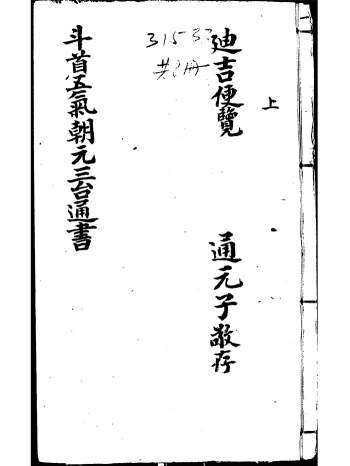 上
迪吉便覽
通元子敬存
31533
共2冊
斗首五氣朝元三台通書